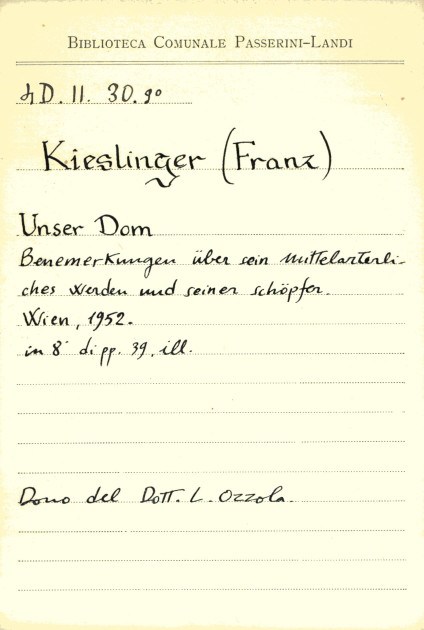 BIBLIOTECA COMUNALE PASSERINI-LANDI
4D. II. 30. 9º
Kieslinger (Franz)
Unser Dom
Benemerkungen über sein Mittelarterli-
ches Werden und seiner schöpfer.
Wien, 1952.
in 8° di pp. 39, ill.
Dono del Dott. L. Ozzola.